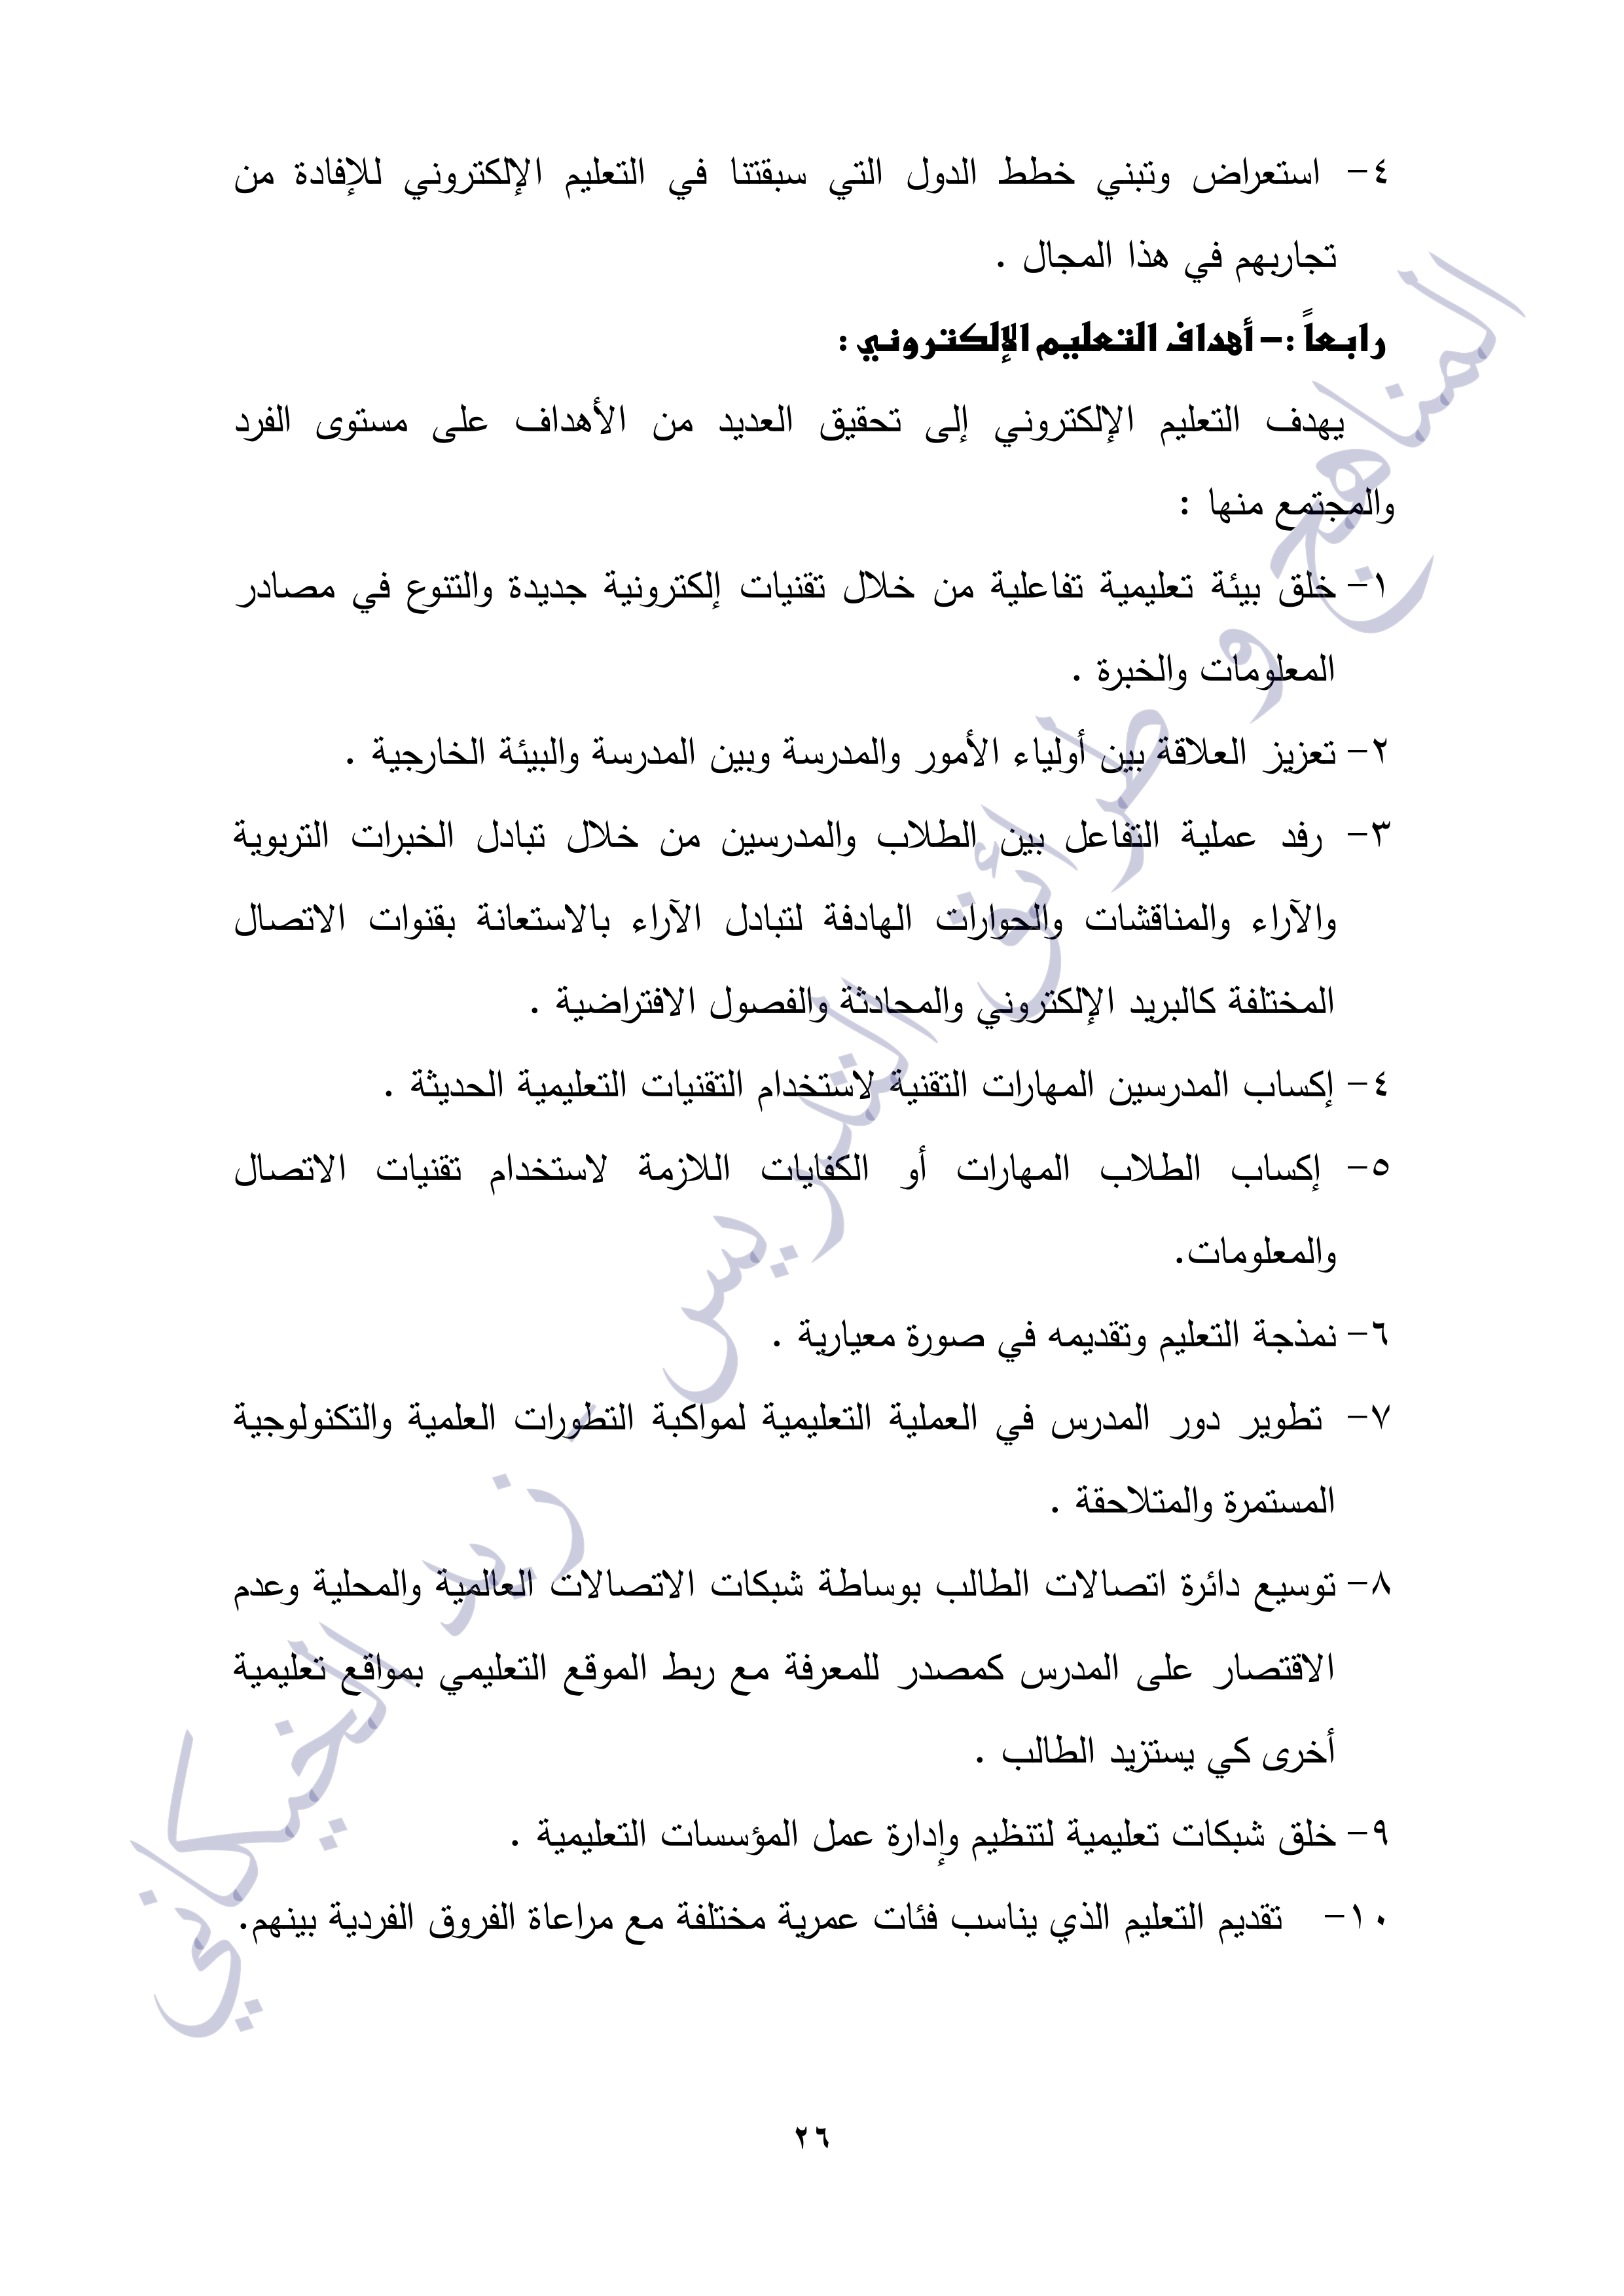 ٤- استعراض وتبني خطط الدول التي سبقتنا في التعليم الإلكتروني للإفادة من
تجاربهم في هذا المجال .
رابعاً :- أهداف التعليم الإلكتروني :
يهدف التعليم الإلكتروني إلى تحقيق العديد من الأهداف على مستوى الفرد
والمجتمع منها :
١- خلق بيئة تعليمية تفاعلية من خلال تقنيات إلكترونية جديدة والتنوع في مصادر
المعلومات والخبرة .
٢- تعزيز العلاقة بين أولياء الأمور والمدرسة وبين المدرسة والبيئة الخارجية .
٣- رفد عملية التفاعل بين الطلاب والمدرسين من خلال تبادل الخبرات التربوية
والآراء والمناقشات والحوارات الهادفة لتبادل الآراء بالاستعانة بقنوات الاتصال
المختلفة كالبريد الإلكتروني والمحادثة والفصول الافتراضية .
٤- إكساب المدرسين المهارات التقنية لاستخدام التقنيات التعليمية الحديثة .
٥- إكساب الطلاب المهارات أو الكفايات اللازمة لاستخدام تقنيات الاتصال
والمعلومات.
٦- نمذجة التعليم وتقديمه في صورة معيارية .
٧- تطوير دور المدرس في العملية التعليمية لمواكبة التطورات العلمية والتكنولوجية
المستمرة والمتلاحقة .
٨- توسيع دائرة اتصالات الطالب بوساطة شبكات الاتصالات العالمية والمحلية وعدم
الاقتصار على المدرس كمصدر للمعرفة مع ربط الموقع التعليمي بمواقع تعليمية
أخرى كي يستزيد الطالب .
٩- خلق شبكات تعليمية لتنظيم وإدارة عمل المؤسسات التعليمية .
١٠- تقديم التعليم الذي يناسب فئات عمرية مختلفة مع مراعاة الفروق الفردية بينهم.
المناهج و طرائق التدريس - زيد الخيكاني
٢٦